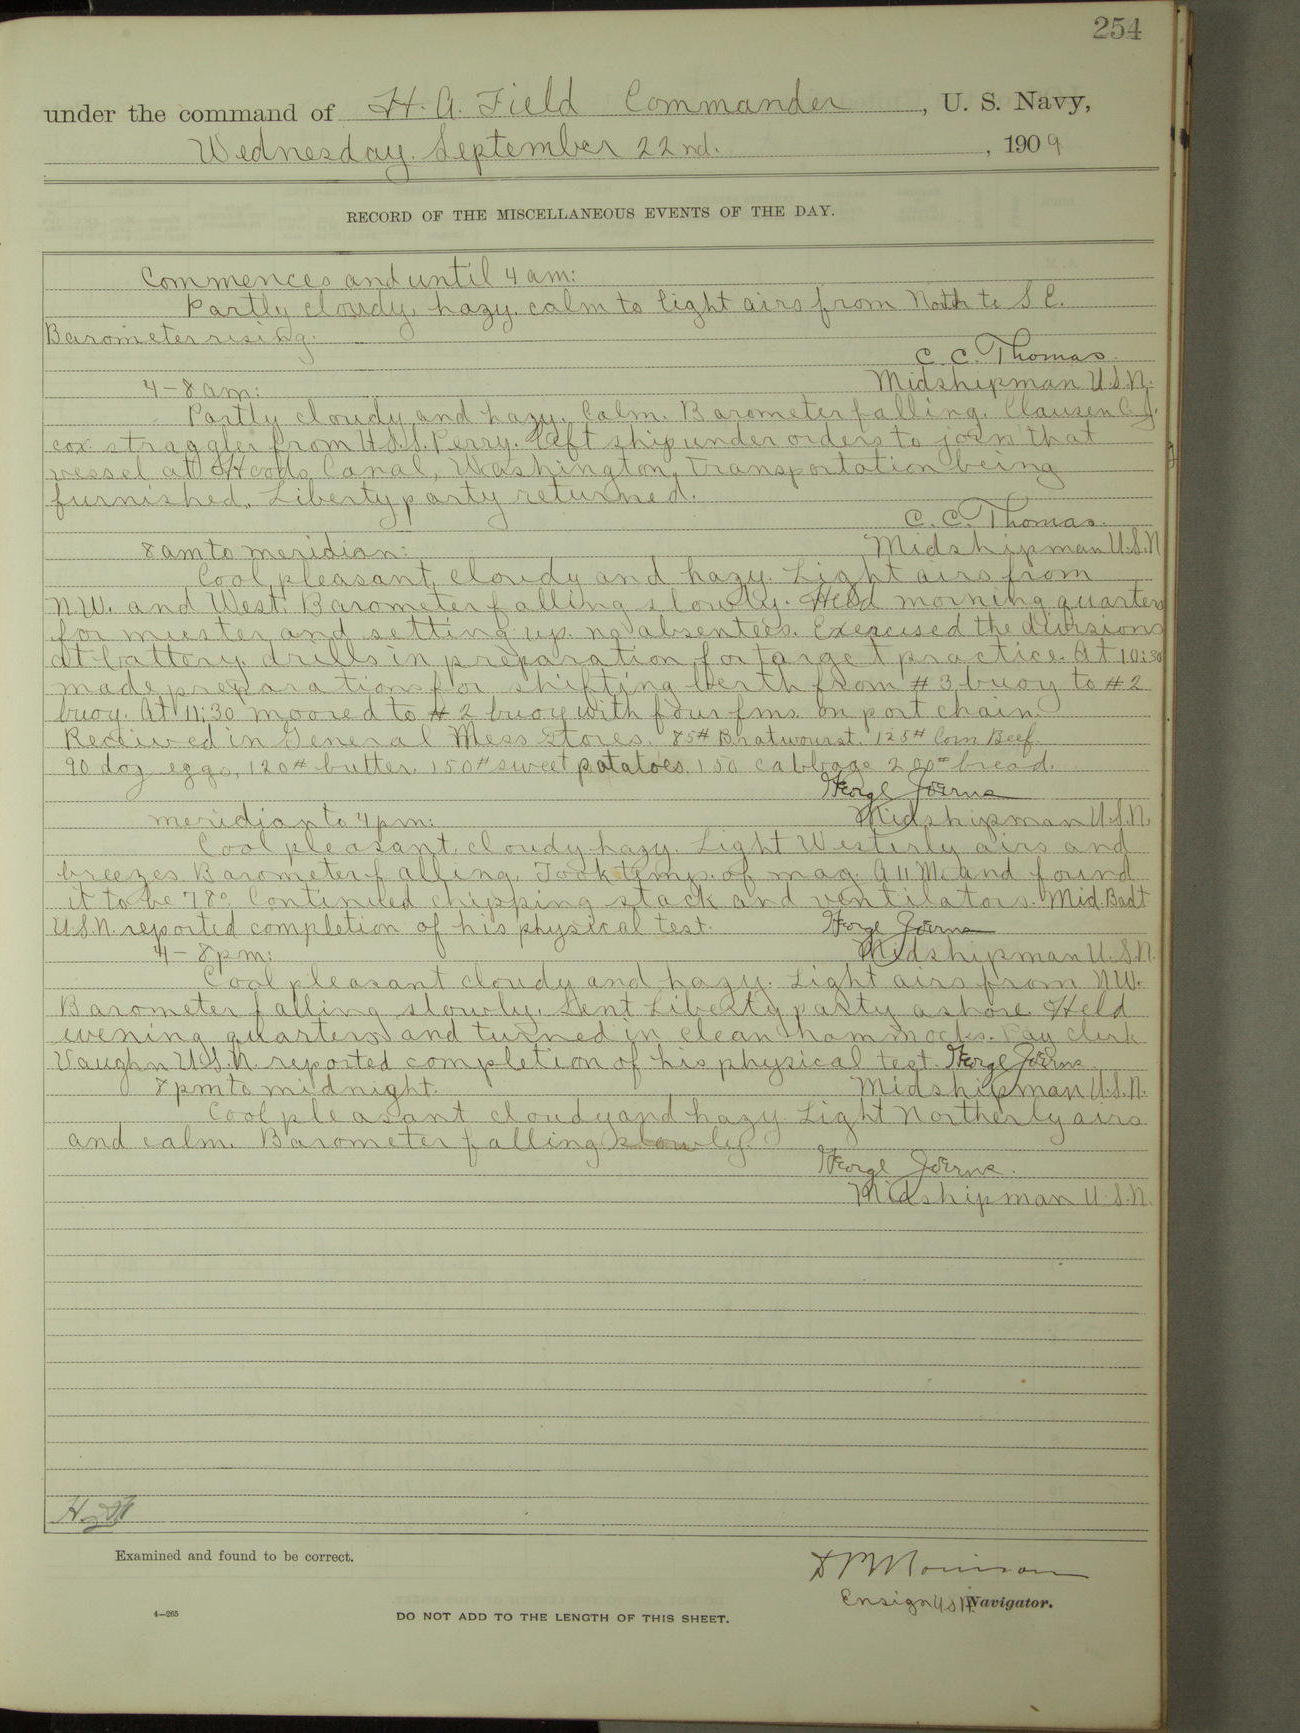 254
under the command of H. A. Field Commander, U. S. Navy,
Wednesday. September 22nd., 1909
RECORD OF THE MISCELLANEOUS EVENTS OF THE DAY.
Commences and until 4 am:
Partly cloudy, hazy, calm to light airs from North to S E.
Barometer rising.
C. C. Thomas
Midshipman U.S.N.
4 - 8 am:
Partly cloudy and hazy. Calm. Barometer falling. Clausen C. J.
cox straggler from U.S.S. Perry. left ship under orders to join that
vessel at Hoods Canal, Washington, transportation being
furnished. Liberty party returned.
C. C. Thomas.
Midshipman U.S.N
8 am to meridian:
Cool pleasant, cloudy and hazy. Light airs from
N.W. and West. Barometer falling slowly. Held morning quarters
for muster and setting up. no absentees. Exercised the divisions
at battery drills in preparation for target practice. At 10:30
made preparations for shifting berth from # 3 buoy to # 2
buoy. At 11:30 moored to # 2 buoy with four fms. on port chain.
Received in General Mess Stores. 85# Bratwourst. 125# Corn Beef.
90 doz eggs, 120# butter. 150# sweet potatoes. 150 cabbage 200# bread.
George Joerns
Midshipman U.S.N.
meridian to 4 pm:
Cool pleasant, cloudy hazy. Light Westerly airs and
breezes. Barometer falling. Took temps. of mag. A 11 M. and found
it to be 78°. Continued chipping stack and ventilators. Mid. Badt
U.S.N. reported completion of his physical test. George Joerns
4 - 8 pm: Midshipman U.S.N.
Cool pleasant cloudy and hazy. Light airs from N.W.
Barometer falling slowly. Sent Liberty party ashore. Held
evening quarters and turned in clean hammocks. Pay clerk
Vaughn U.S.N. reported completion of his physical test. George Joerns.
8 pm to midnight. Midshipman U.S.N.
Cool pleasant cloudy and hazy. Light Northerly airs
and calm. Barometer falling slowly.
George Joerns.
Midshipman U.S.N.
Examined and found to be correct.
Ensign U S N. Navigator.
4—265
DO NOT ADD TO THE LENGTH OF THIS SHEET.